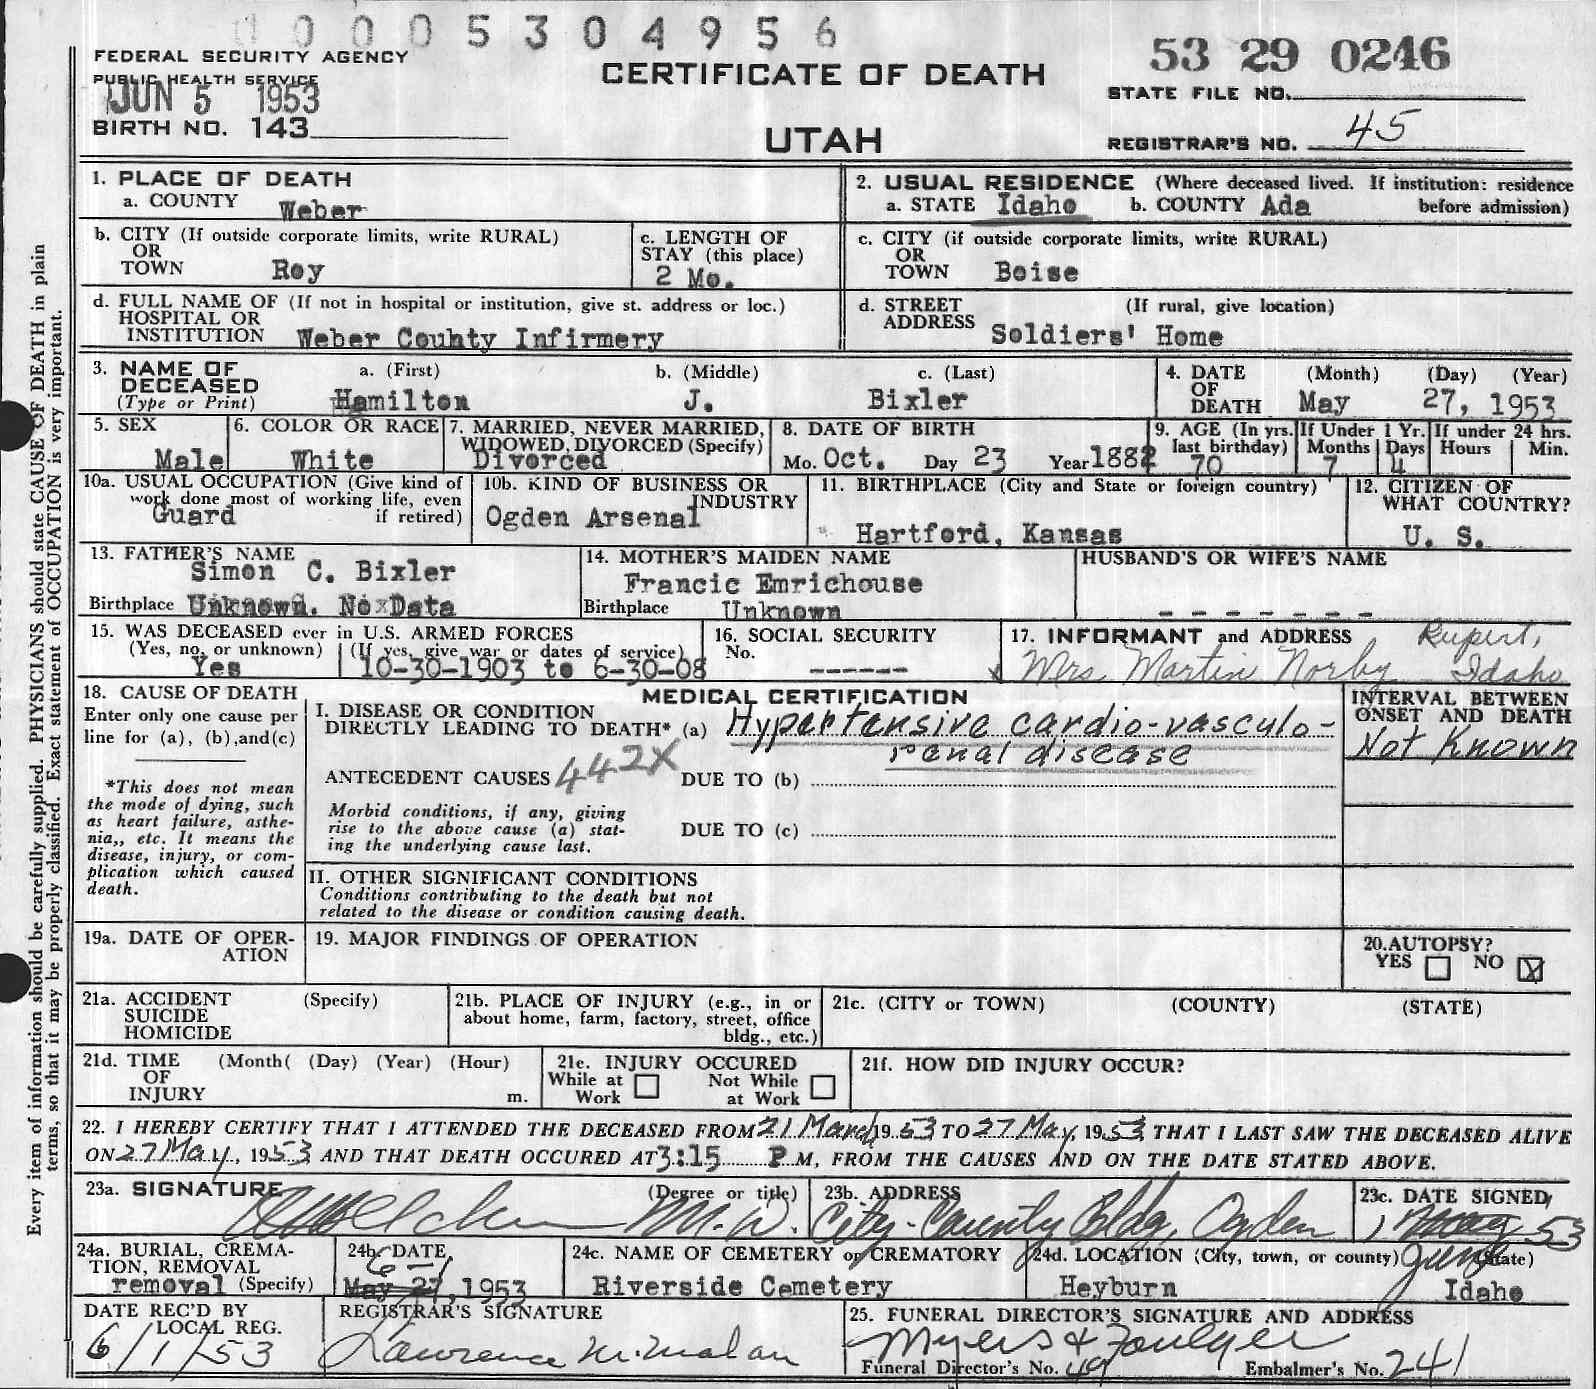 0 0 0 0 5 3 0 4 9 5 6
FEDERAL SECURITY AGENCY
PUBLIC HEALTH SERVICE
JUN 5 1953
BIRTH NO. 143
CERTIFICATE OF DEATH
UTAH
53 29 0246
STATE FILE NO.
REGISTRAR'S NO. 45
1. PLACE OF DEATH
a. COUNTY Weber
2. USUAL RESIDENCE (Where deceased lived. If institution: residence before admission)
a. STATE Idaho b. COUNTY Ada
b. CITY (If outside corporate limits, write RURAL)
OR
TOWN Roy
c. LENGTH OF
STAY (this place)
2 Mo.
c. CITY (if outside corporate limits, write RURAL)
OR
TOWN Boise
d. FULL NAME OF (If not in hospital or institution, give st. address or loc.)
HOSPITAL OR
INSTITUTION Weber County Infirmery
d. STREET (If rural, give location)
ADDRESS Soldiers' Home
3. NAME OF
DECEASED
(Type or Print)
a. (First) b. (Middle) c. (Last)
Hamilton J. Bixler
4. DATE (Month) (Day) (Year)
OF
DEATH May 27, 1953
5. SEX
Male
6. COLOR OR RACE
White
7. MARRIED, NEVER MARRIED,
WIDOWED, DIVORCED (Specify)
Divorced
8. DATE OF BIRTH
Mo. Oct. Day 23 Year 1882
9. AGE (In yrs. last birthday)
70
If Under 1 Yr.
Months Days
7 4
If under 24 hrs.
Hours Min.
10a. USUAL OCCUPATION (Give kind of
work done most of working life, even
if retired)
Guard
10b. KIND OF BUSINESS OR
INDUSTRY
Ogden Arsenal
11. BIRTHPLACE (City and State or foreign country)
Hartford, Kansas
12. CITIZEN OF
WHAT COUNTRY?
U. S.
13. FATHER'S NAME
Simon C. Bixler
Birthplace Unknown. No Data
14. MOTHER'S MAIDEN NAME
Francic Emrichouse
Birthplace Unknown
HUSBAND'S OR WIFE'S NAME
- - - - - - -
15. WAS DECEASED ever in U.S. ARMED FORCES
(Yes, no, or unknown) (If yes, give war or dates of service)
Yes 10-30-1903 to 6-30-08
16. SOCIAL SECURITY
No. ------
17. INFORMANT and ADDRESS Rupert,
Mrs. Martin Norby Idaho
18. CAUSE OF DEATH
Enter only one cause per
line for (a), (b),and(c)
*This does not mean
the mode of dying, such
as heart failure, asthe-
nia,, etc. It means the
disease, injury, or com-
plication which caused
death.
MEDICAL CERTIFICATION
I. DISEASE OR CONDITION
DIRECTLY LEADING TO DEATH* (a) Hypertensive cardio-vasculo-
renal disease
ANTECEDENT CAUSES 442X DUE TO (b)
Morbid conditions, if any, giving
rise to the above cause (a) stat-
ing the underlying cause last.
DUE TO (c)
INTERVAL BETWEEN
ONSET AND DEATH
Not Known
II. OTHER SIGNIFICANT CONDITIONS
Conditions contributing to the death but not
related to the disease or condition causing death.
19a. DATE OF OPER-
ATION
19. MAJOR FINDINGS OF OPERATION
20. AUTOPSY?
YES NO X
21a. ACCIDENT (Specify)
SUICIDE
HOMICIDE
21b. PLACE OF INJURY (e.g., in or
about home, farm, factory, street, office
bldg., etc.)
21c. (CITY or TOWN) (COUNTY) (STATE)
21d. TIME (Month( (Day) (Year) (Hour)
OF
INJURY m.
21e. INJURY OCCURED
While at Work Not While at Work
21f. HOW DID INJURY OCCUR?
22. I HEREBY CERTIFY THAT I ATTENDED THE DECEASED FROM 21 March 1953 TO 27 May, 1953, THAT I LAST SAW THE DECEASED ALIVE
ON 27 May, 1953 AND THAT DEATH OCCURED AT 3:15 P M, FROM THE CAUSES AND ON THE DATE STATED ABOVE.
23a. SIGNATURE (Degree or title)
M.D.
23b. ADDRESS
City-County Bldg, Ogden
23c. DATE SIGNED
1 May 53
June
24a. BURIAL, CREMA-
TION, REMOVAL
removal (Specify)
24b. DATE
6-1
May 27, 1953
24c. NAME OF CEMETERY or CREMATORY
Riverside Cemetery
24d. LOCATION (City, town, or county) (State)
Heyburn Idaho
DATE REC'D BY
LOCAL REG.
6/1/53
REGISTRAR'S SIGNATURE
Lawrence M. Malan
25. FUNERAL DIRECTOR'S SIGNATURE AND ADDRESS
Myers & Foulger
Funeral Director's No. 49 Embalmer's No. 241
Every item of information should be carefully supplied. PHYSICIANS should state CAUSE OF DEATH in plain
terms, so that it may be properly classified. Exact statement of OCCUPATION is very important.